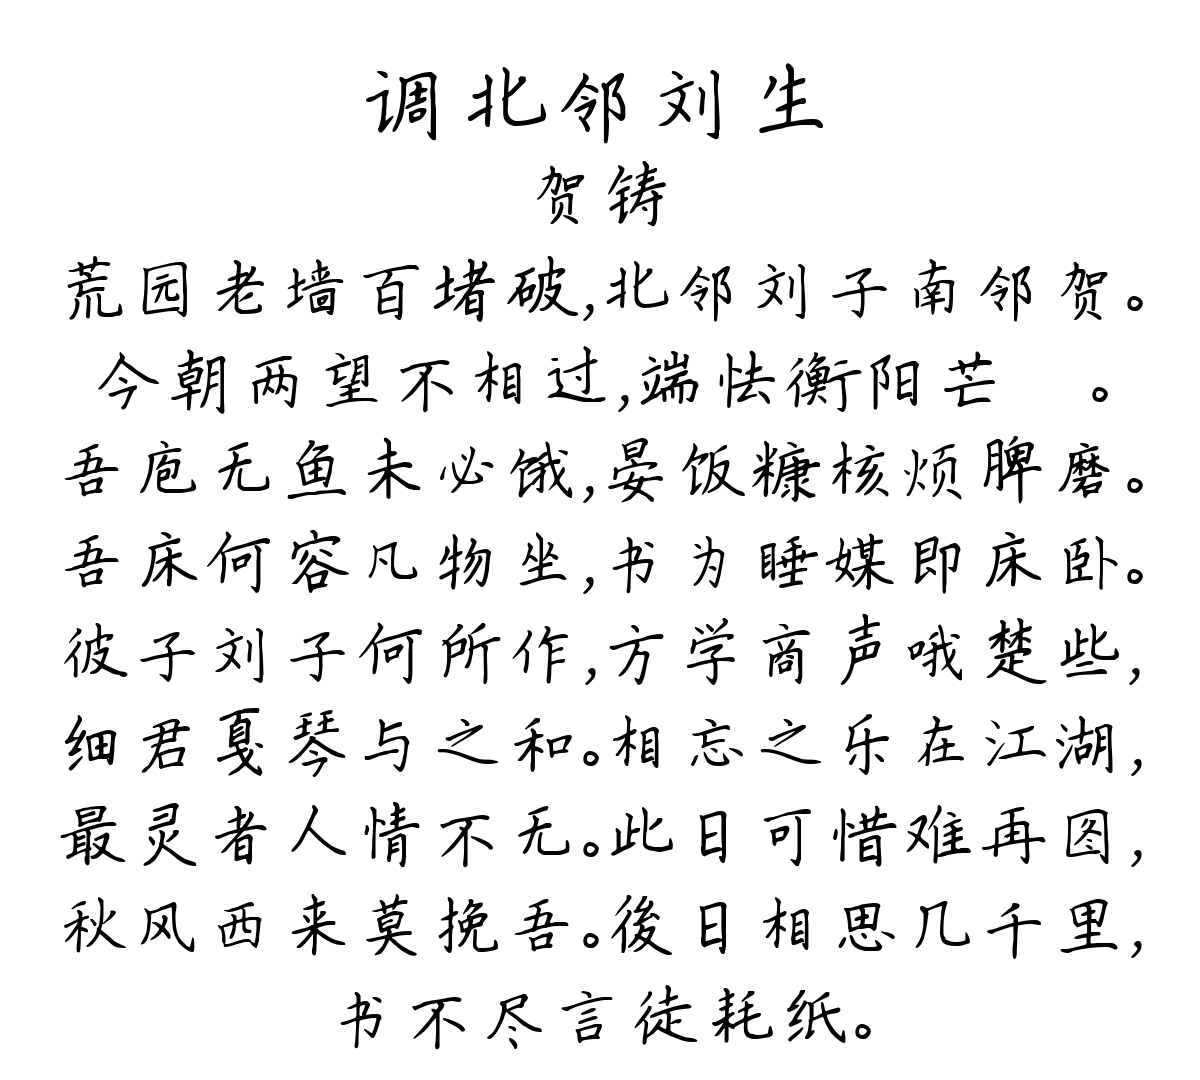 调北邻刘生
贺铸
荒园老墙百堵破,北邻刘子南邻贺。
今朝两望不相过,端怯衡阳芒 。
吾庖无鱼未必饿,晏饭糠核烦脾磨。
吾床何容凡物坐,书为睡媒即床卧。
彼子刘子何所作,方学商声哦楚些,
细君戛琴与之和。相忘之乐在江湖,
最灵者人情不无。此日可惜难再图,
秋风西来莫挽吾。後日相思几千里,
书不尽言徒耗纸。